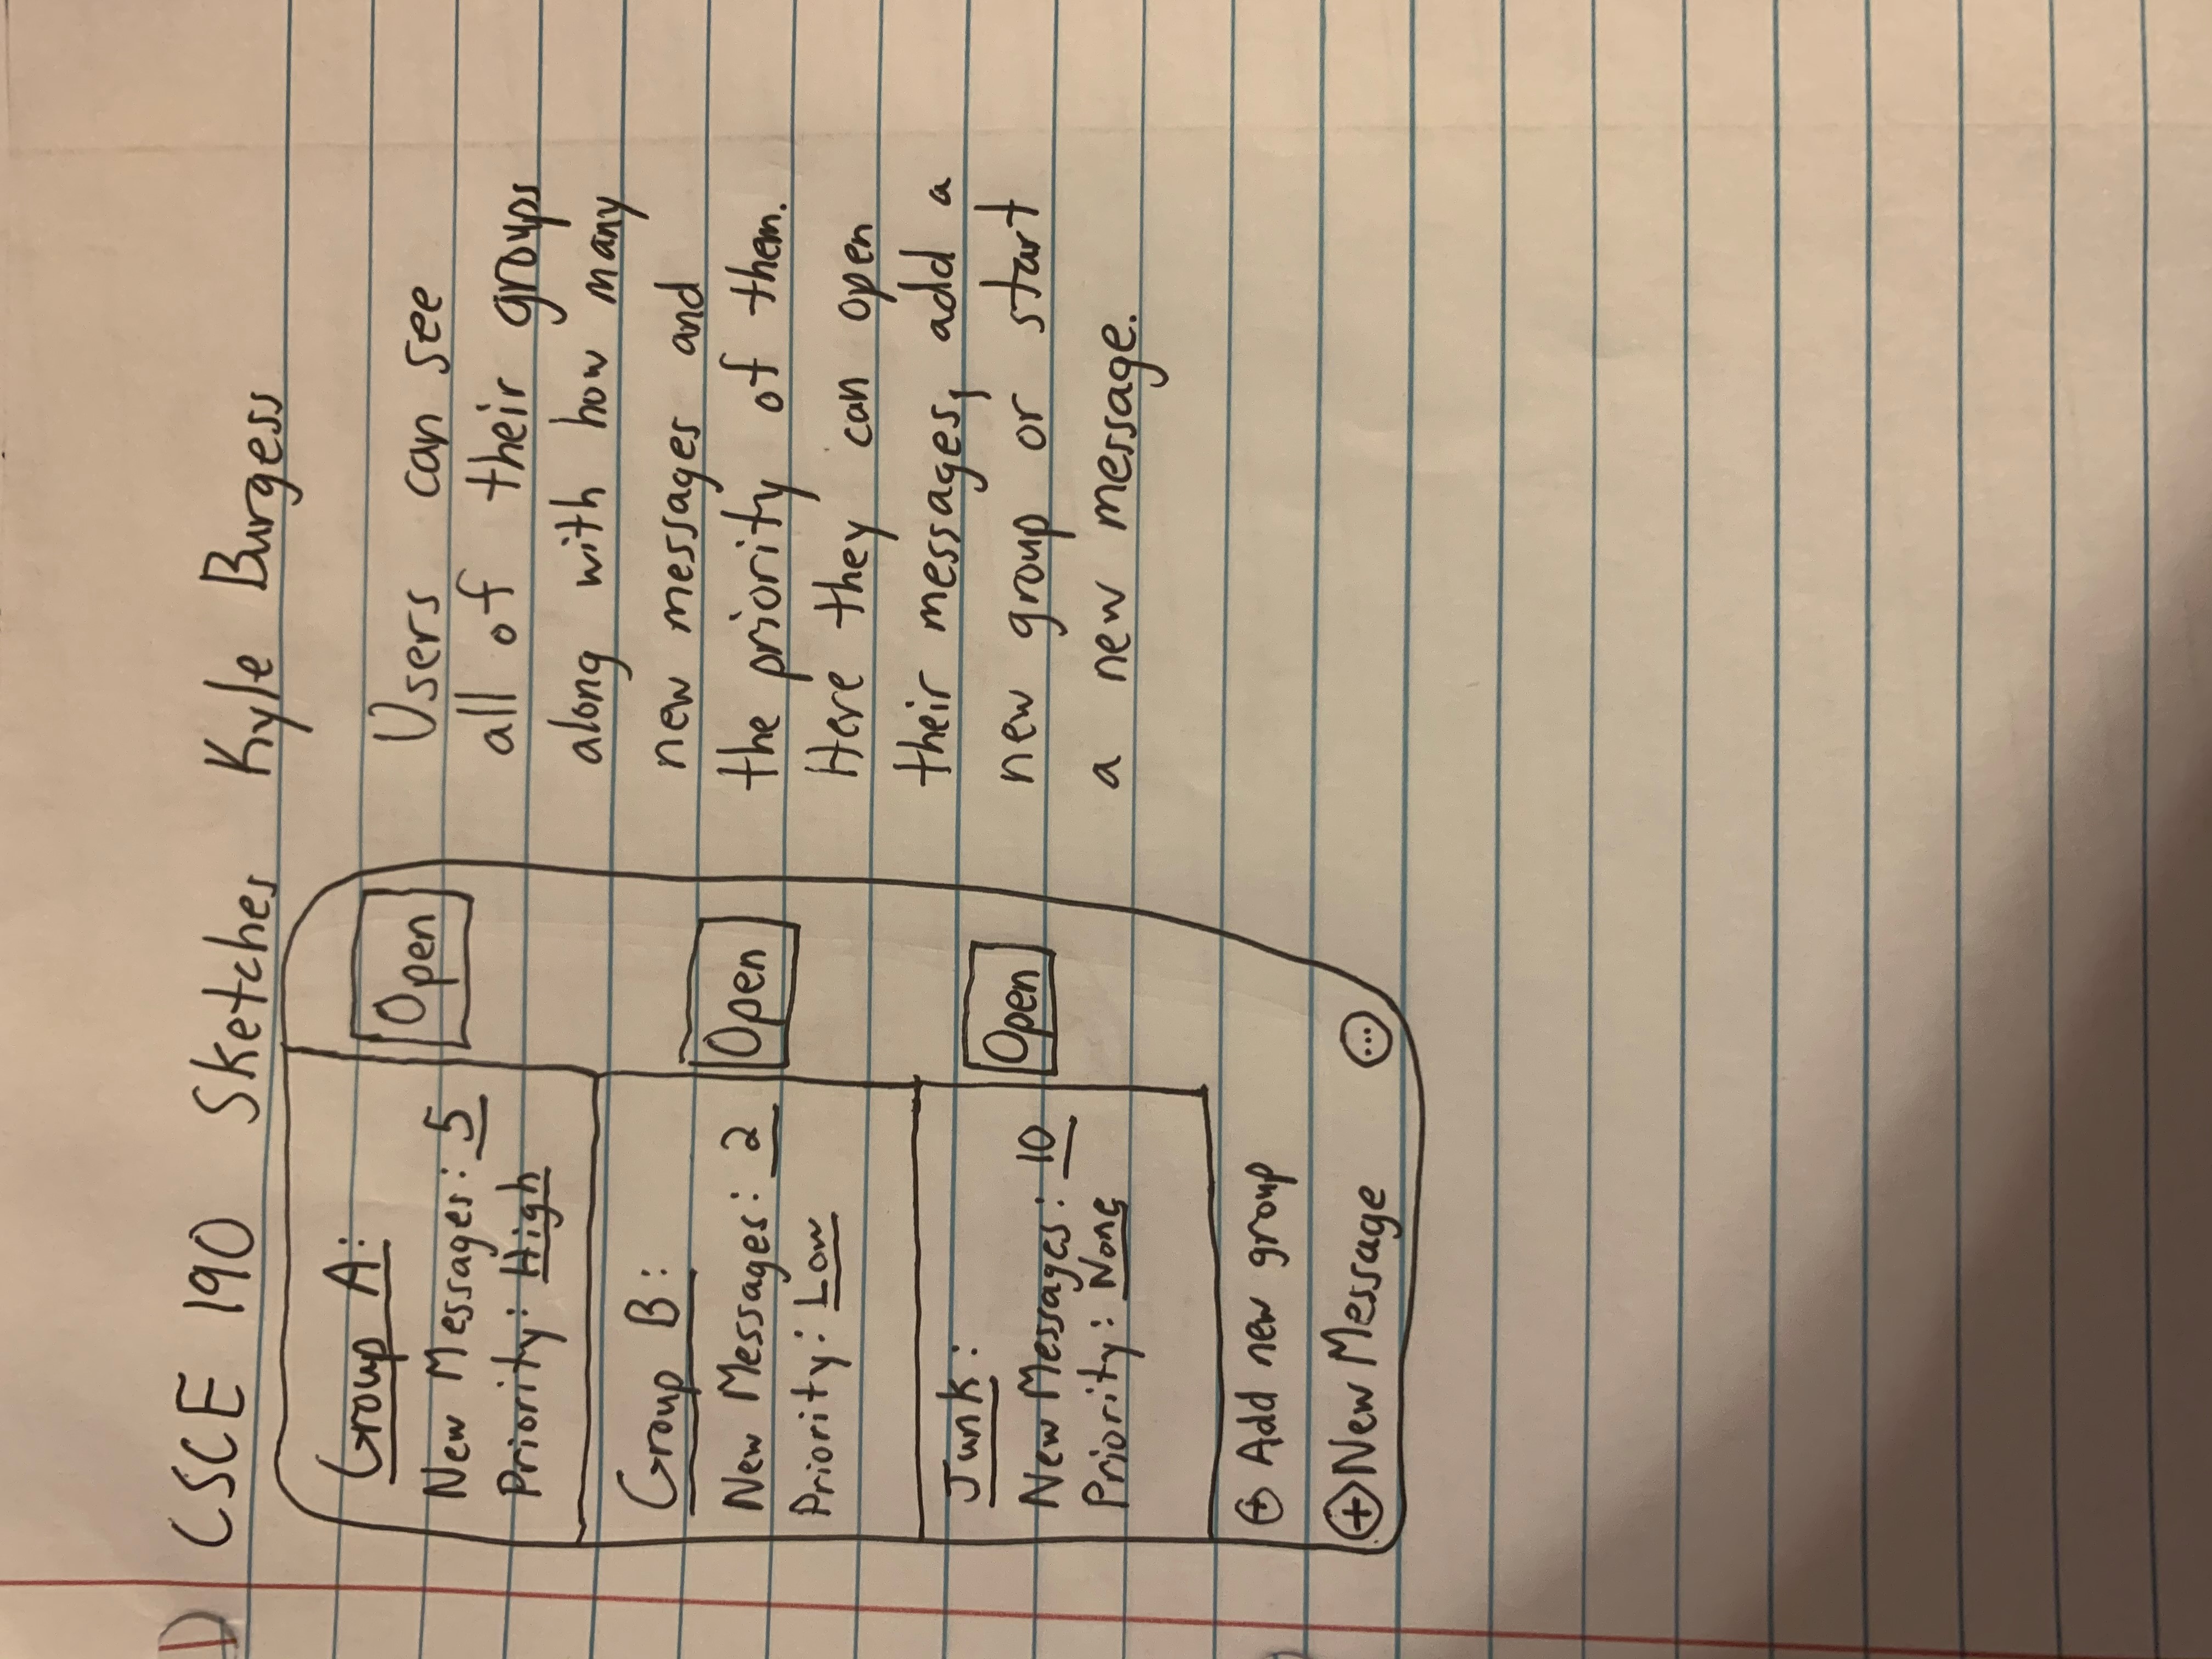 D CSCE 190 Sketches Kyle Burgess
Group A:
New Messages: 5
Priority: High
Open
Group B:
New Messages: 2
Priority: Low
Open
Junk:
New Messages: 10
Priority: None
Open
+ Add new group
+ New Message ...
Users can see
all of their groups
along with how many
new messages and
the priority of them.
Here they can open
their messages, add a
new group or start
a new message.